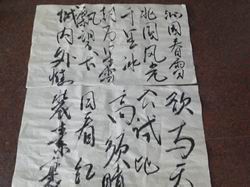 沁园春雪
北国风光
千里冰
封万里雪
飘望
城内外惟
欲与天
公试比
高须晴
日看红
装素裹